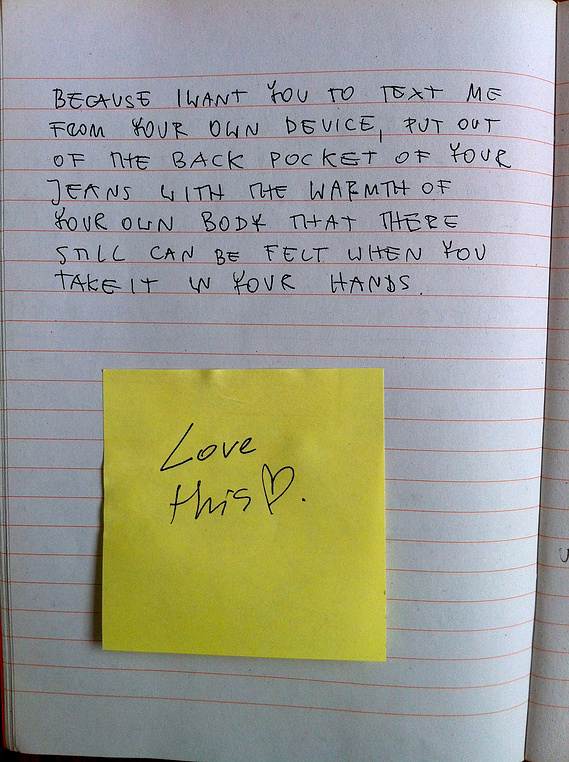 BECAUSE I WANT YOU TO TEXT ME
FROM YOUR OWN DEVICE, PUT OUT
OF THE BACK POCKET OF YOUR
JEANS WITH THE WARMTH OF
YOUR OWN BODY THAT THERE
STILL CAN BE FELT WHEN YOU
TAKE IT IN YOUR HANDS.
Love
this♡.